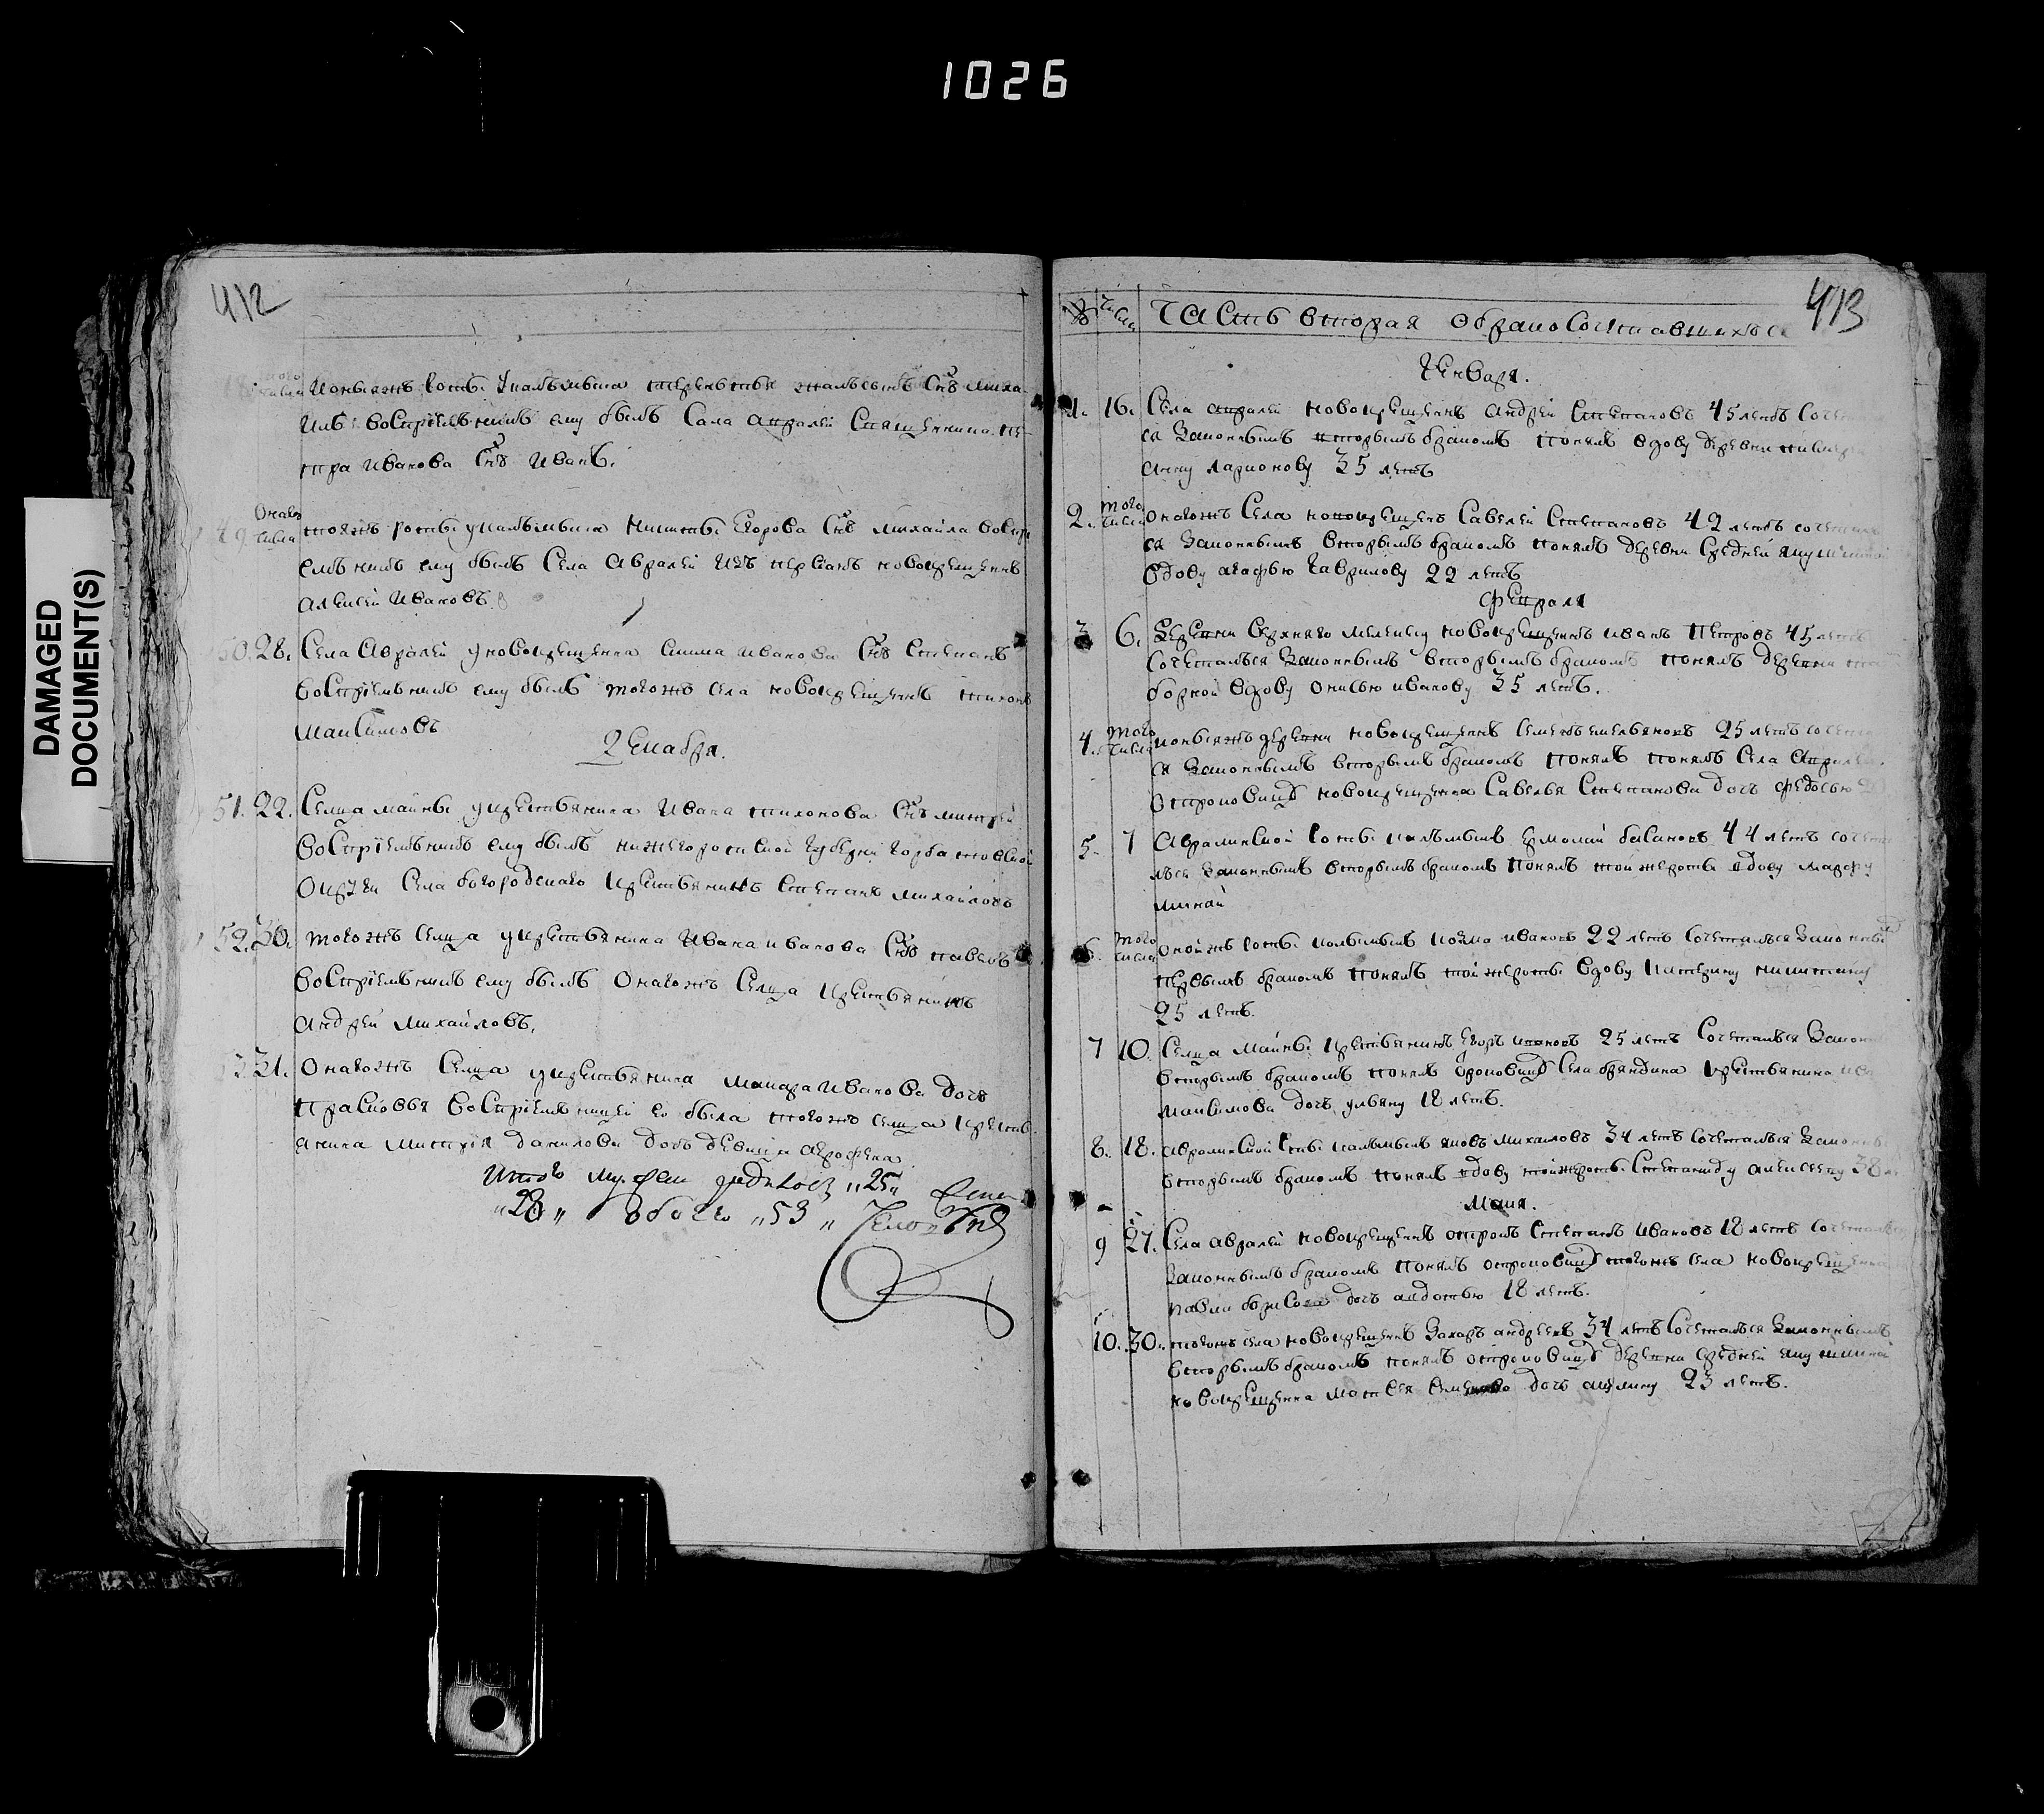 1026
DAMAGED
DOCUMENT(S)
412
ионыяжъ роты у калмыка сынъ миха
илъ воспрїемникъ ему былъ Села авралей Священника пе
тра Иванова Снъ Иванъ.
Онаго числа тояжъ роты у калмыка никиты Егорова Снъ михайла воспрї
емникъ ему былъ Села авралей изъ новокрещенъ
алексей Ивановъ
50. 28. Села авралей у новокрещена Иванова Снъ Степанъ
воспрїемникъ ему былъ тогожъ села новокрещенъ тихонъ
максимовъ
Декабря.
51. 22. Селца майны у крестьянина Ивана тихонова Снъ митрей
воспрїемникъ ему былъ нижегородской губерни горбатовской
округи Села богородскаго крестьянинъ Степанъ михайловъ
52. 30. тогожъ Селца у крестьянина Ивана иванова Снъ павелъ
воспрїемникъ ему былъ Онагожъ Селца крестьянинъ
андрей михайловъ.
31. Онагожъ Селца у крестьянина макара Иванова дочь
прасковья воспрїемницей ей была тогожъ селца крестья
нина митрия данилова дочь девица аграфена
Итого муж: родилось „25„ жен:
„28„ обоего „53„
413
№ числа Часть вторая Обракосочетавшихся
Генваря.
1. 16. Села авралей новокрещенъ андрей Степановъ 45 летъ
ся Законнымъ вторымъ бракомъ понялъ вдову деревни
анну ларионову 35 летъ
2. того числа Онагожъ Села новокрещенъ Савелей Степановъ 42 летъ
ся Законнымъ вторымъ бракомъ понялъ деревни Средней якушкиной
вдову агафью гаврилову 22 летъ
февраля
3 6. Деревни верхняго мелекесу новокрещенъ иванъ Петровъ 45 летъ
Сочетался Законнымъ вторымъ бракомъ понялъ деревни
борной вдову Онисью иванову 35 летъ.
4. того числа ионыяжъ деревни новокрещенъ Семенъ емельяновъ 25 летъ
ся Законнымъ вторымъ бракомъ понялъ понялъ Села авралей
отроковицу новокрещена Савелья Степанова дочь федосью
5. 7 Авралинской роты калмыкъ ермолай басановъ 44 летъ
лся Законнымъ вторымъ бракомъ понялъ тойжероты вдову марфу
6. того числа онойжъ роты калмыкъ ивановъ 22 летъ Сочетался Законны
первымъ бракомъ понялъ тойжероты вдову катерину никитину
25 летъ.
7 10. Селца майны крестьянинъ Егоръ ивановъ 25 летъ Сочетался Законн
вторымъ бракомъ понялъ Села бряндина крестьянина
максимова дочь ульяну 18 летъ.
8. 18. авралинской роты калмыкъ яковъ михаиловъ 34 летъ Сочетался Законны
вторымъ бракомъ понялъ вдову тойжероты Степаниду алексееву 38
Маия.
9 27. Села авралей новокрещенъ отрокъ Степанъ Ивановъ 18 летъ
Законнымъ бракомъ понялъ отроковицу тогожъ села новокрещена
павла борисова дочь авдотью 18 летъ.
10. 30. тогожъ села новокрещенъ Захаръ андреевъ 34 летъ Сочетался Законнымъ
вторымъ бракомъ понялъ отроковицу деревни средней якушкиной
новокрещена матвея Семенова дочь акулину 23 летъ.